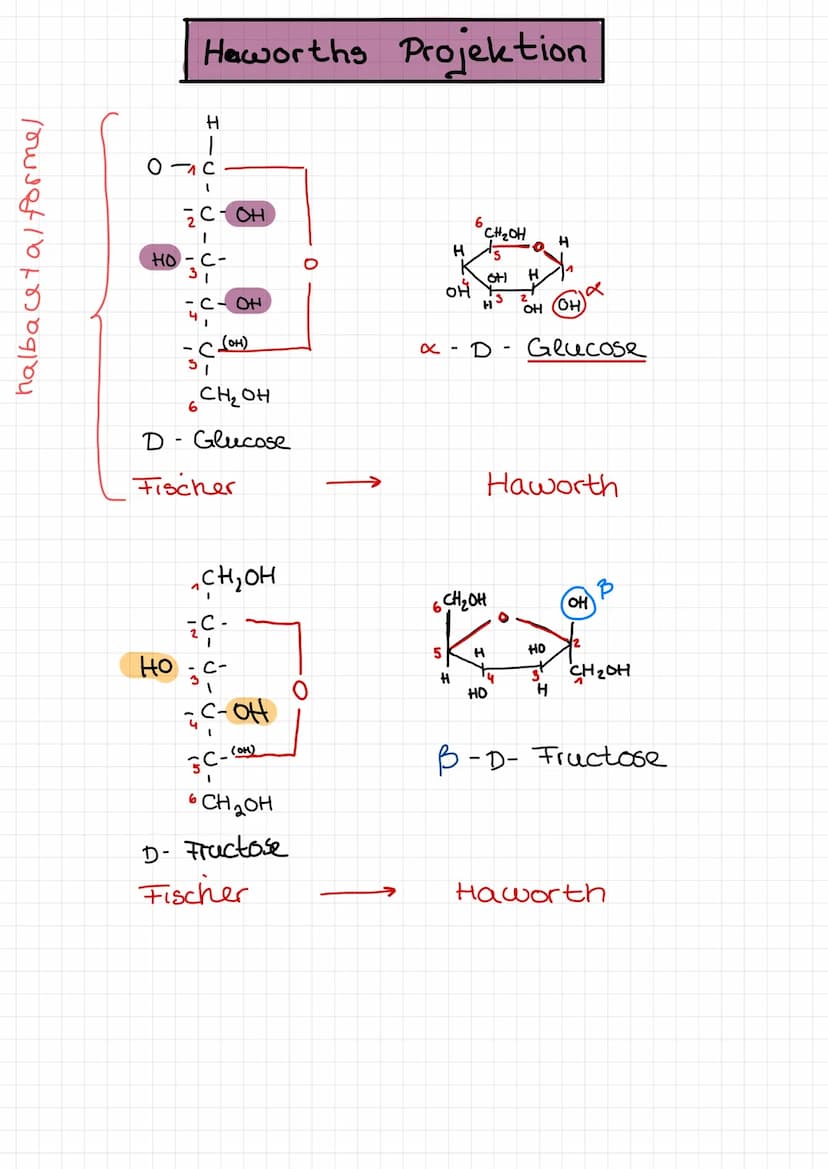 Haworths Projektion
halbacetalformel
H
O - 1 C
2 C - OH
HO - 3 C -
O
4 C - OH
5 C - (OH)
6 CH2OH
D - Glucose
Fischer → Haworth
6 CH2OH
H 5 O H
4 OH H 1
OH H 3 2 OH OH α
α - D - Glucose
1 CH2OH
2 C -
HO - 3 C -
O
4 C - OH
5 C - (OH)
6 CH2OH
D - Fructose
Fischer → Haworth
6 CH2OH O OH β
5 H HO 2
H 4 3 1 CH2OH
HO H
β - D - Fructose